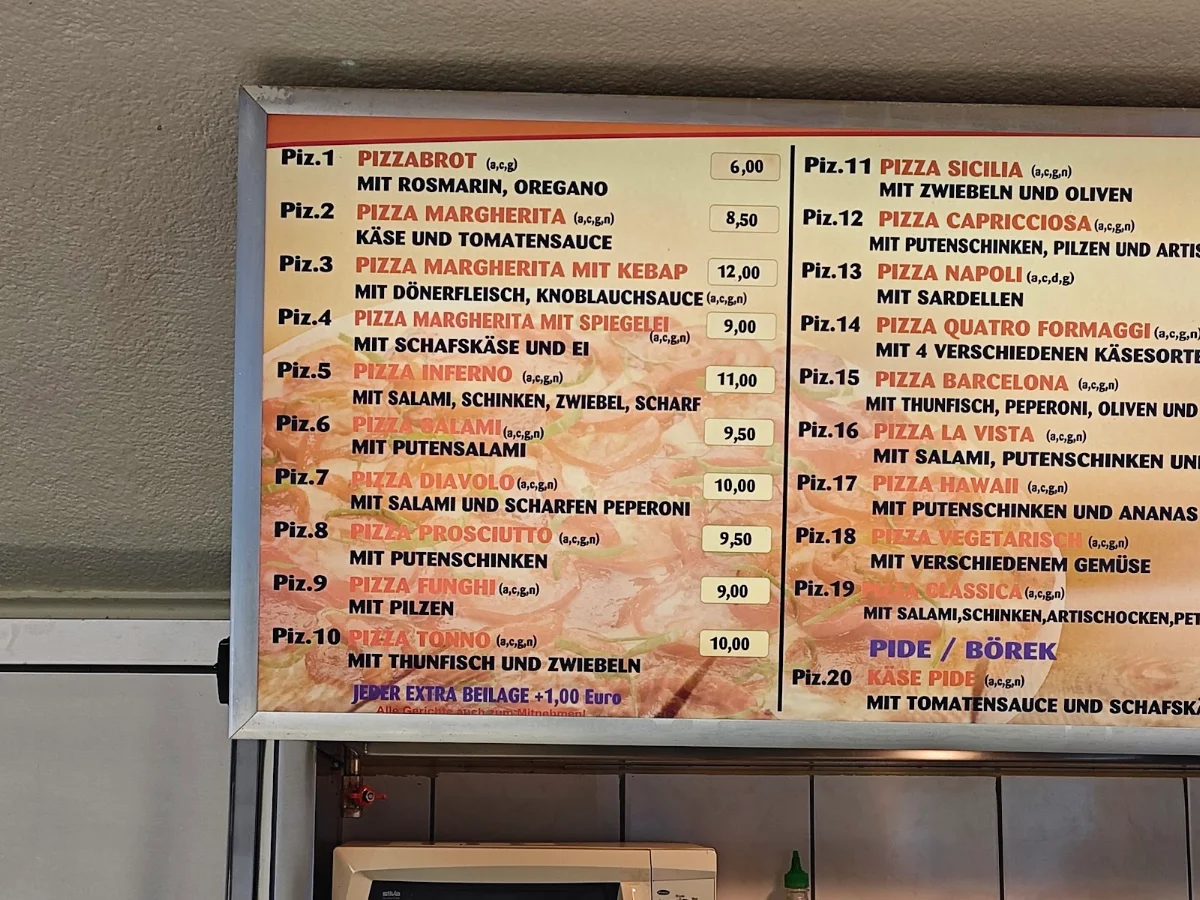 Piz.1 PIZZABROT (a,c,g) 6,00
MIT ROSMARIN, OREGANO
Piz.2 PIZZA MARGHERITA (a,c,g,n) 8,50
KÄSE UND TOMATENSAUCE
Piz.3 PIZZA MARGHERITA MIT KEBAP 12,00
MIT DÖNERFLEISCH, KNOBLAUCHSAUCE (a,c,g,n)
Piz.4 PIZZA MARGHERITA MIT SPIEGELEI 9,00
(a,c,g,n)
MIT SCHAFSKÄSE UND EI
Piz.5 PIZZA INFERNO (a,c,g,n) 11,00
MIT SALAMI, SCHINKEN, ZWIEBEL, SCHARF
Piz.6 PIZZA SALAMI (a,c,g,n) 9,50
MIT PUTENSALAMI
Piz.7 PIZZA DIAVOLO (a,c,g,n) 10,00
MIT SALAMI UND SCHARFEN PEPERONI
Piz.8 PIZZA PROSCIUTTO (a,c,g,n) 9,50
MIT PUTENSCHINKEN
Piz.9 PIZZA FUNGHI (a,c,g,n) 9,00
MIT PILZEN
Piz.10 PIZZA TONNO (a,c,g,n) 10,00
MIT THUNFISCH UND ZWIEBELN
JEDER EXTRA BEILAGE +1,00 Euro
Alle Gerichte auch zum Mitnehmen!
Piz.11 PIZZA SICILIA (a,c,g,n)
MIT ZWIEBELN UND OLIVEN
Piz.12 PIZZA CAPRICCIOSA (a,c,g,n)
MIT PUTENSCHINKEN, PILZEN UND ARTIS
Piz.13 PIZZA NAPOLI (a,c,d,g)
MIT SARDELLEN
Piz.14 PIZZA QUATRO FORMAGGI (a,c,g,n)
MIT 4 VERSCHIEDENEN KÄSESORTE
Piz.15 PIZZA BARCELONA (a,c,g,n)
MIT THUNFISCH, PEPERONI, OLIVEN UND
Piz.16 PIZZA LA VISTA (a,c,g,n)
MIT SALAMI, PUTENSCHINKEN UN
Piz.17 PIZZA HAWAII (a,c,g,n)
MIT PUTENSCHINKEN UND ANANAS
Piz.18 PIZZA VEGETARISCH (a,c,g,n)
MIT VERSCHIEDENEM GEMÜSE
Piz.19 PIZZA CLASSICA (a,c,g,n)
MIT SALAMI,SCHINKEN,ARTISCHOCKEN,PET
PIDE / BÖREK
Piz.20 KÄSE PIDE (a,c,g,n)
MIT TOMATENSAUCE UND SCHAFSKÄ